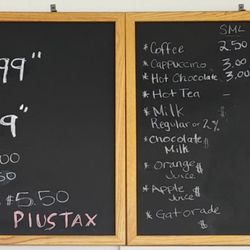 99"
9"
00
50
$5.50
PLUS TAX
SML
*Coffee 2.50
*Cappuccino 3.00
*Hot Chocolate 3.00
*Hot Tea -
*Milk $
Regular or 2%
*Chocolate $
Milk
*Orange $
Juice
*Apple $
Juice
*Gatorade $